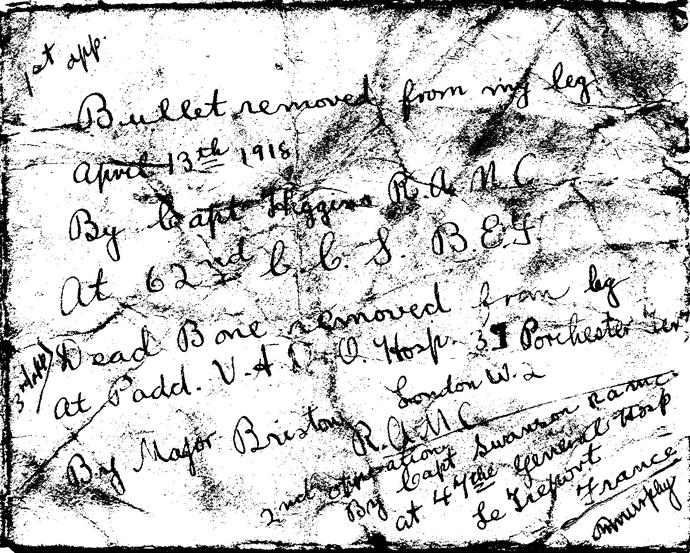 1st opp.
Bullet removed from my leg
April 13th 1918
By Capt Higgins R.A.M.C
At 62nd C.C.S. B.E.F
3rd
Dead Bone removed from leg
at Padd. V.A.D.O. Hosp. 31 Porchester
London W.2
By Major Bristow R.A.M.C
2nd operation
By Capt Swanson RAMC
at 47th General Hosp
Le Treport
France
Murphy